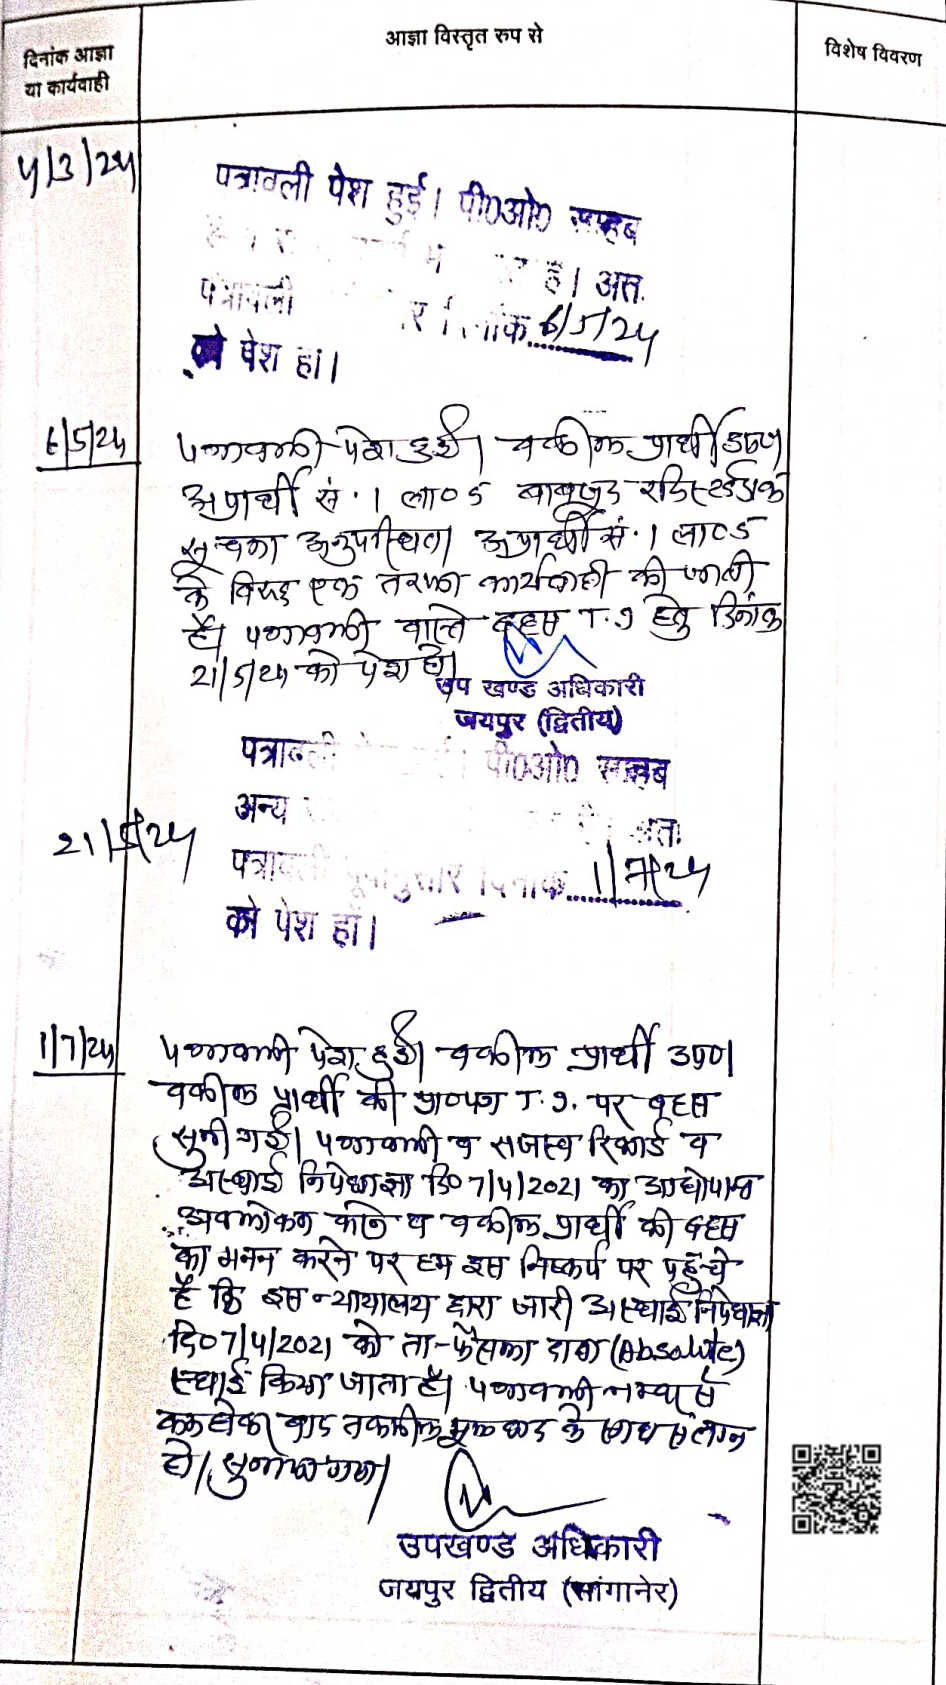 दिनांक आज्ञा
या कार्यवाही
आज्ञा विस्तृत रुप से
विशेष विवरण
4/3/24
पत्रावली पेश हुई। पी०ओ० साहब
है। अतः
पत्रावली दिनांक 6/5/24
को पेश हो।
6/5/24
पत्रावली पेश हुई। वकील प्रार्थी उप०।
अप्रार्थी सं. 1 ता० 5 बावजूद रजिस्टर्ड डाक
सूचना अनुपस्थित। अप्रार्थी सं. 1 ता० 5
के विरुद्ध एक तरफा कार्यवाही की जाती
है। पत्रावली वास्ते बहस T.I हेतु दिनांक
21/5/24 को पेश हो।
उप खण्ड अधिकारी
जयपुर (द्वितीय)
21/5/24
पत्रावली पी०ओ० साहब
अन्य अतः
पत्रावली पूर्वानुसार दिनांक 1/7/24
को पेश हो।
1/7/24
पत्रावली पेश हुई। वकील प्रार्थी उप०।
वकील प्रार्थी की प्रा०पत्र T.I. पर बहस
सुनी गई। पत्रावली व राजस्व रिकार्ड व
अस्थाई निषेधाज्ञा दि० 7/4/2021 का आद्योपान्त
अवलोकन करने व वकील प्रार्थी की बहस
का मनन करने पर हम इस निष्कर्ष पर पहुँचे
है कि इस न्यायालय द्वारा जारी अस्थाई निषेधाज्ञा
दि० 7/4/2021 को ता-फैसला दावा (Absolute)
स्थाई किया जाता है। पत्रावली नम्बर से
कम होकर बाद तकमील मूल वाद के साथ संलग्न
हो। सुनाया गया।
उपखण्ड अधिकारी
जयपुर द्वितीय (सांगानेर)